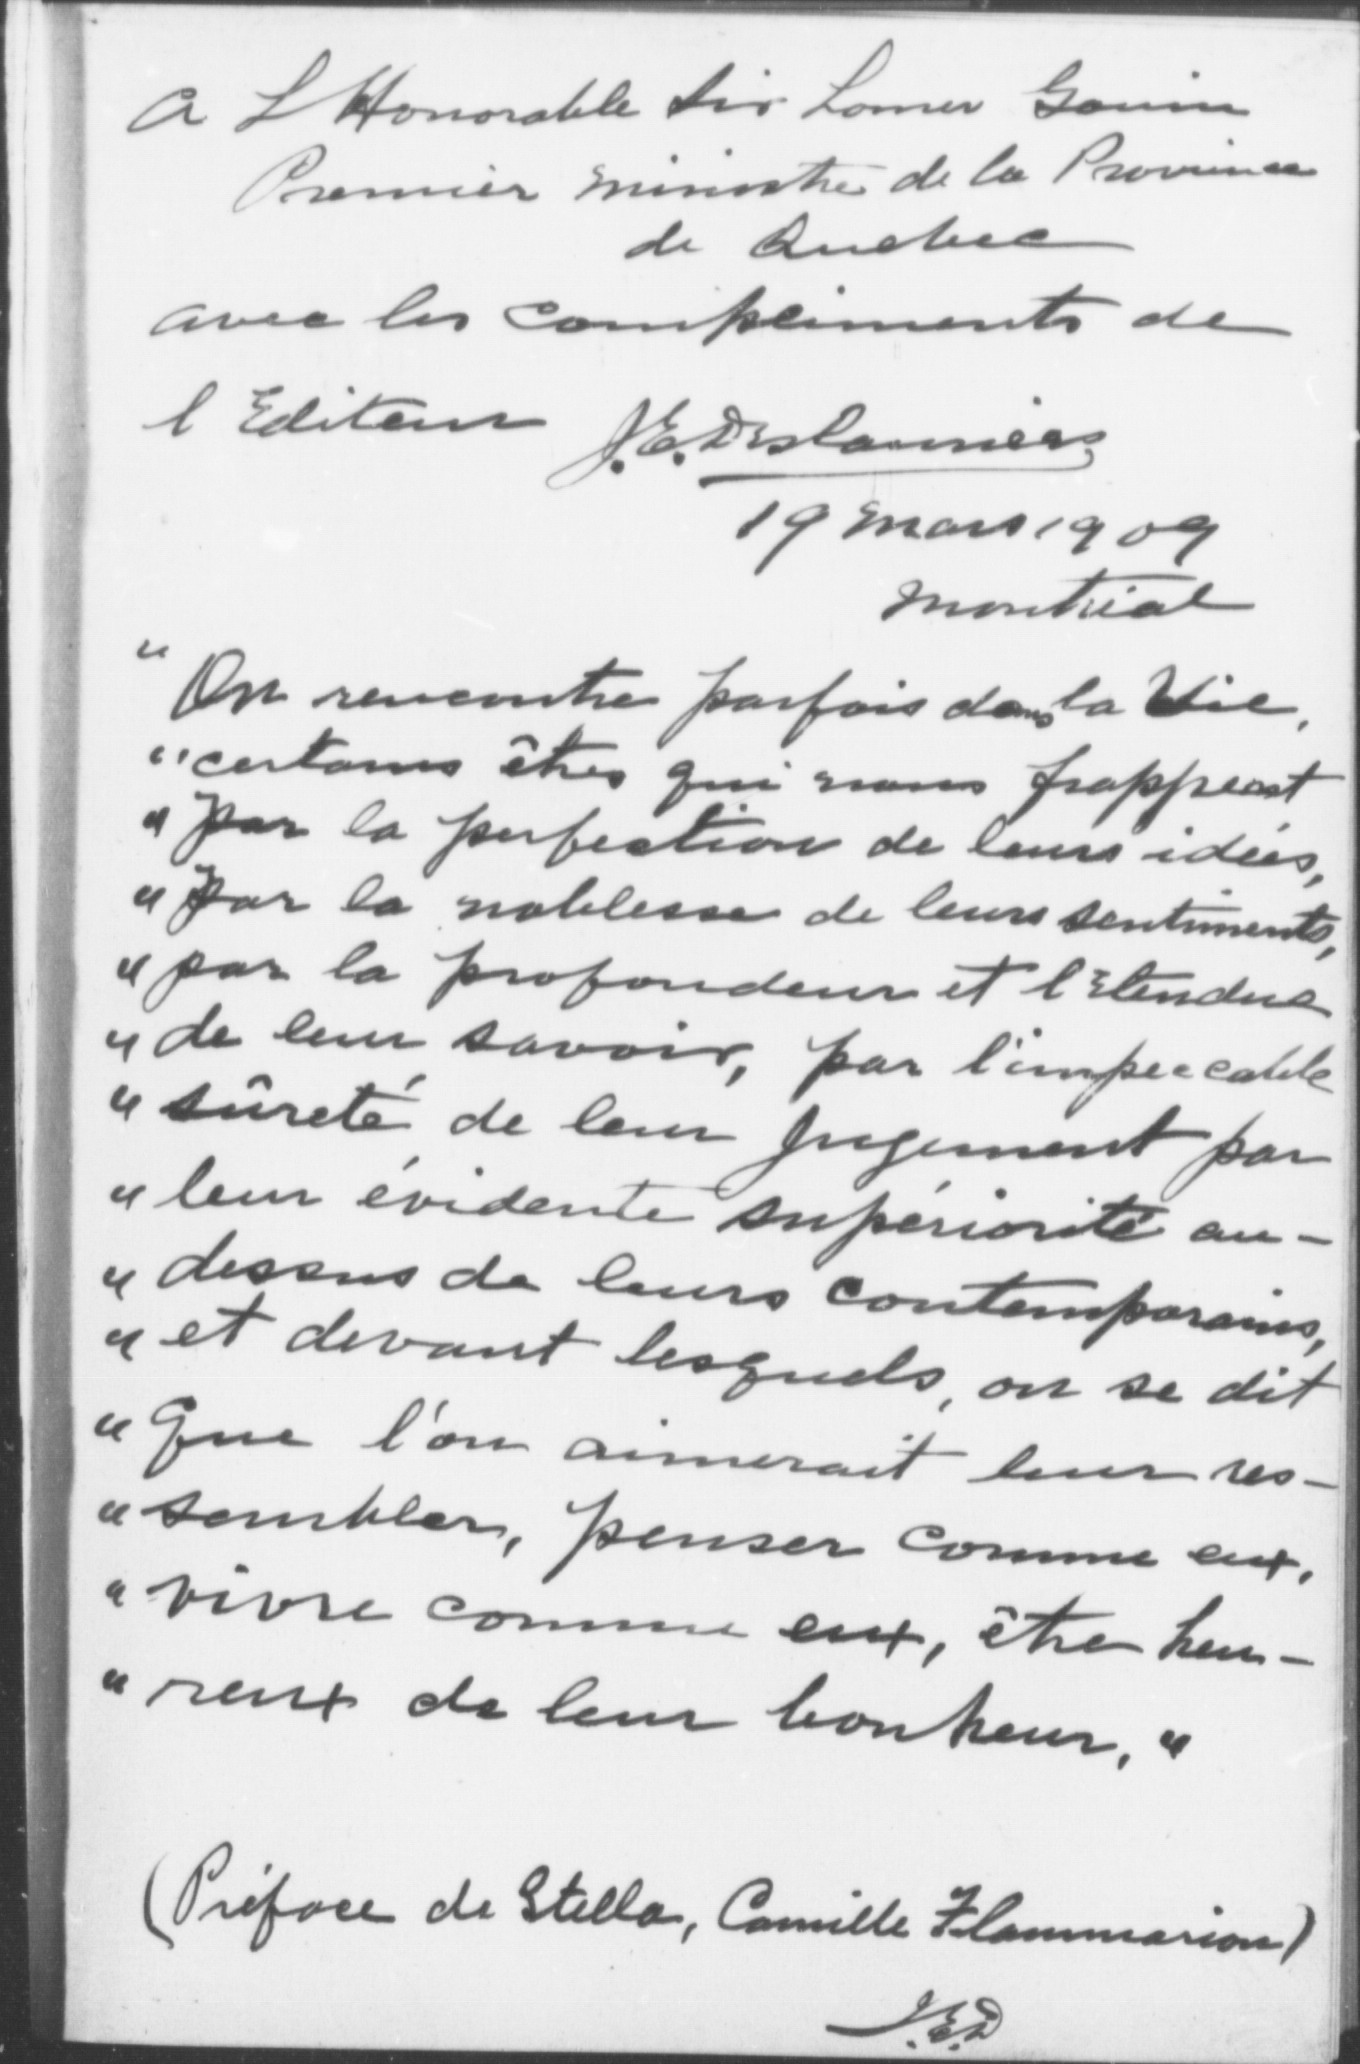 A L'Honorable Sir Lomer Gouin
Premier ministre de la Province
de Quebec
avec les compliments de
l'Editeur J.E. Deslauriers
19 mars 1909
Montréal
" On rencontre parfois dans la Vie,
" certains êtres qui nous frappent
" par la perfection de leurs idées,
" par la noblesse de leurs sentiments,
" par la profondeur et l'Etendue
" de leur savoir, par l'impeccable
" sûreté de leur jugement par
" leur évidente supériorité au-
" dessus de leurs contemporains,
" et devant lesquels, on se dit
" Que l'on aimerait leur res-
" sembler, penser comme eux,
" vivre comme eux, être heu-
" reux de leur bonheur, "
(Préface de Stella, Camille Flammarion)
J.E.D